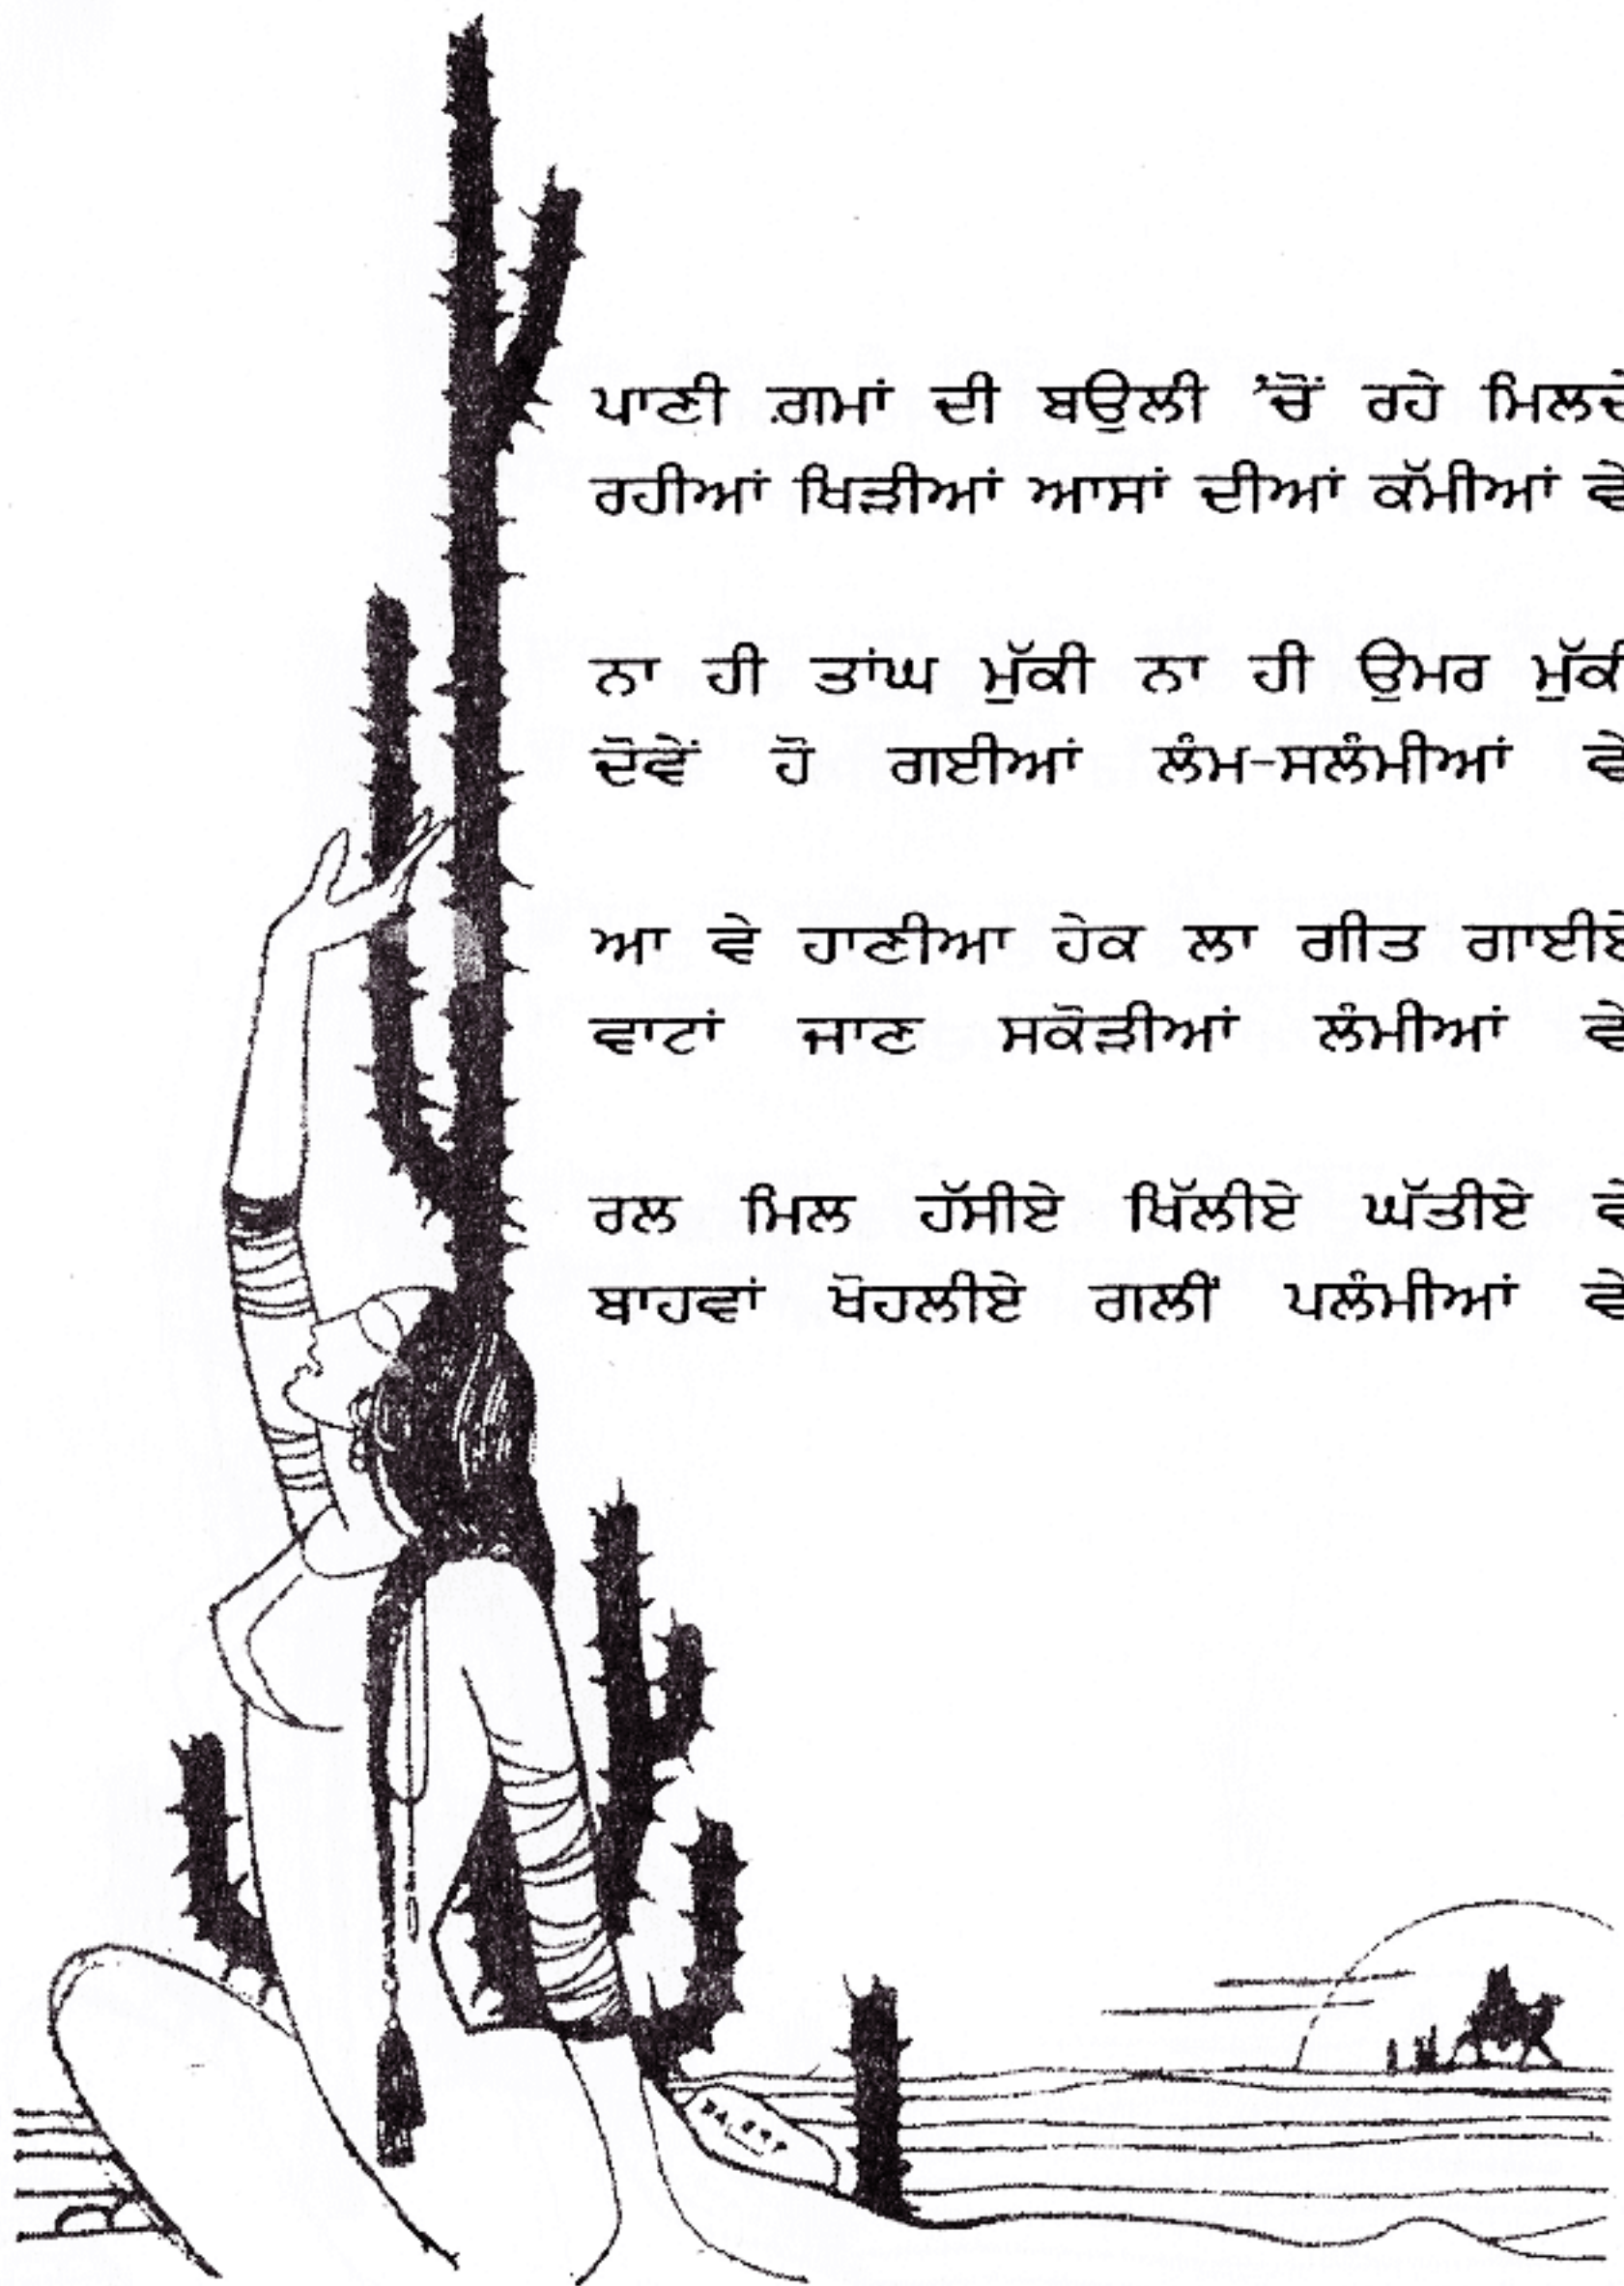 ਪਾਣੀ ਗ਼ਮਾਂ ਦੀ ਬਉਲੀ 'ਚੋਂ ਰਹੇ ਮਿਲਦੇ
ਰਹੀਆਂ ਖਿੜੀਆਂ ਆਸਾਂ ਦੀਆਂ ਕੱਮੀਆਂ ਵੇ
ਨਾ ਹੀ ਤਾਂਘ ਮੁੱਕੀ ਨਾ ਹੀ ਉਮਰ ਮੁੱਕੀ
ਦੋਵੇਂ ਹੋ ਗਈਆਂ ਲੰਮ-ਸਲੰਮੀਆਂ ਵੇ
ਆ ਵੇ ਹਾਣੀਆ ਹੇਕ ਲਾ ਗੀਤ ਗਾਈਏ
ਵਾਟਾਂ ਜਾਣ ਸਕੋੜੀਆਂ ਲੰਮੀਆਂ ਵੇ
ਰਲ ਮਿਲ ਹੱਸੀਏ ਖਿੱਲੀਏ ਘੱਤੀਏ ਵੇ
ਬਾਹਵਾਂ ਖੋਹਲੀਏ ਗਲੀਂ ਪਲੰਮੀਆਂ ਵੇ